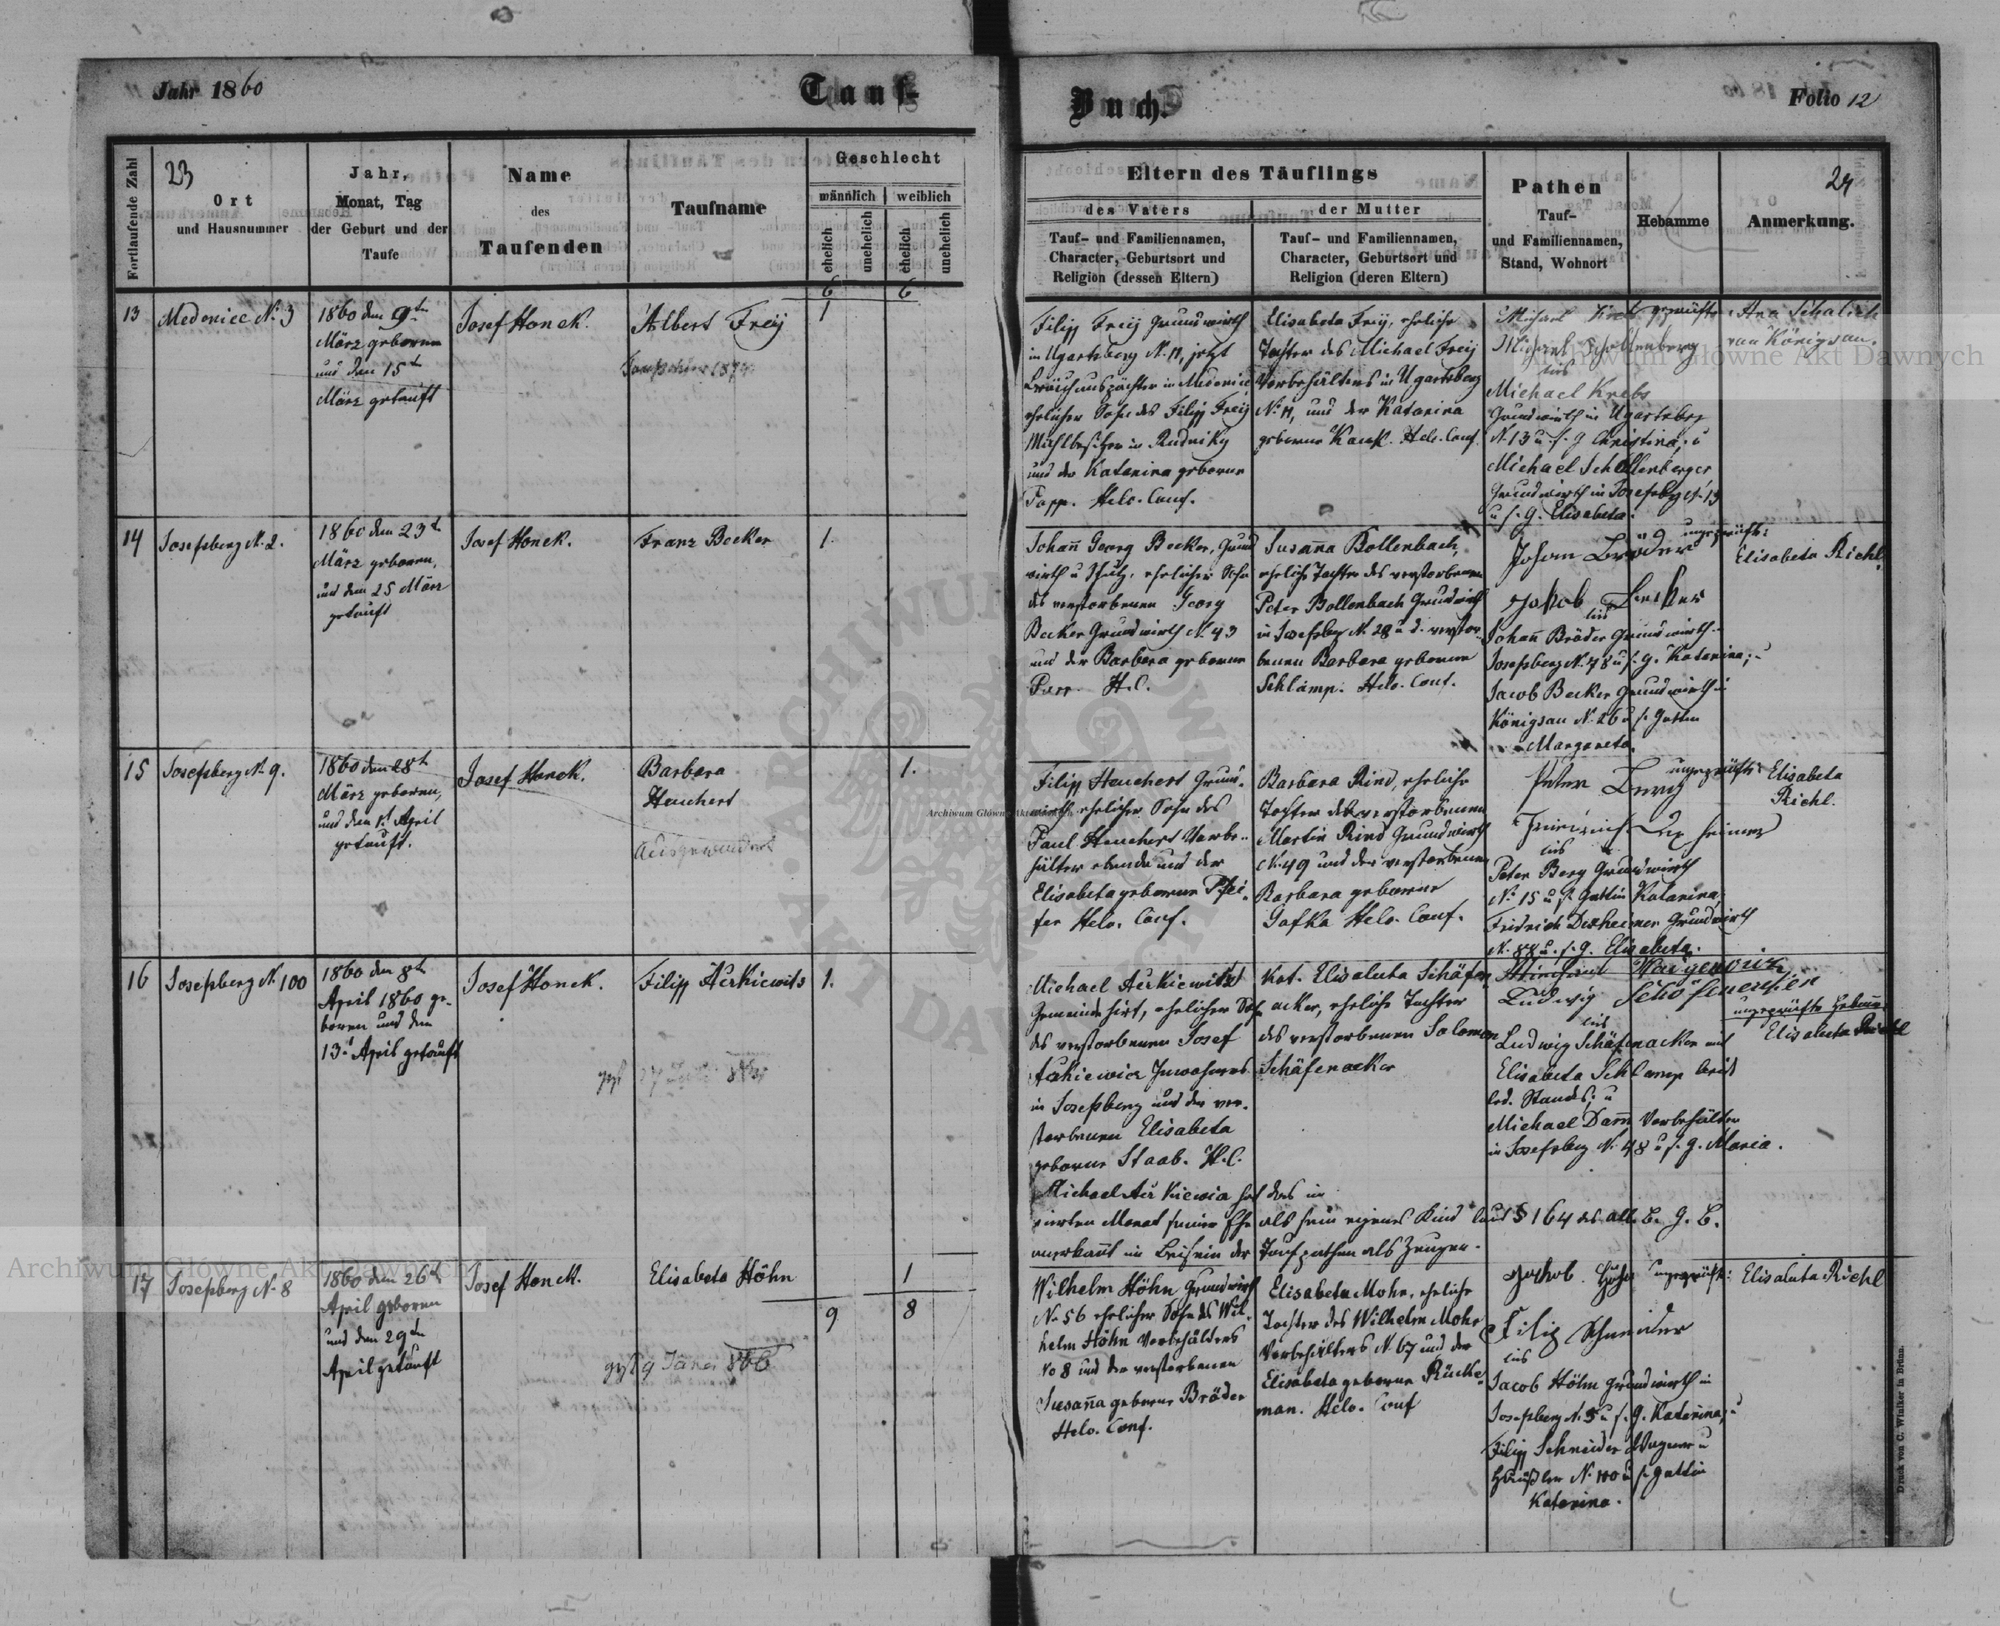 Jahr 1860
Tauf-
Buch.
Folio 12
23
24
Fortlaufende Zahl
Ort
und Hausnummer
Jahr,
Monat, Tag
der Geburt und der
Taufe
Name
des
Taufenden
Taufname
Geschlecht
männlich
weiblich
ehelich
unehelich
ehelich
unehelich
Eltern des Täuflings
des Vaters
Tauf- und Familiennamen,
Character, Geburtsort und
Religion (dessen Eltern)
der Mutter
Tauf- und Familiennamen,
Character, Geburtsort und
Religion (deren Eltern)
Pathen
Tauf-
und Familiennamen,
Stand, Wohnort
Hebamme
Anmerkung.
6
6
13
Medenice No. 3
1860 den 9ten
März geboren
und den 15t
März getauft
Josef Honek.
Albert Freÿ
Taufschein
1
Filipp Freÿ Grundwirth
in Ugartsberg N. 11, jetzt
in Medenice
ehelicher Sohn des Filipp Freÿ
Mühlbesitzer in Rudniky
und der Katarina geborne
Popp. Helv. Conf.
Elisabeta Freÿ, eheliche
Tochter des Michael Freÿ
Vorbehälters in Ugartsberg
No. 11, und der Katarina
geborne Kauf. Helv. Conf.
Michael
Michael Schollenberg
Michael Krebs
Grundwirth in Ugartsberg
N. 13 u. s. g. Christina, u
Michael Schollenberger
Grundwirth in Josefsberg N. 13
u. s. g. Elisabeta.
geprüfte
Ana Schalich
von Königsau.
14
Josefsberg N. 2.
1860 den 23t
März geboren,
und den 25 März
getauft
Josef Honek.
Franz Becker
1.
Johann Georg Becker, Grund
wirth u Schulz, ehelicher Sohn
des verstorbenen Georg
Becker Grundwirth N. 43
und der Barbara geborne
H.C.
Susanna Bollenbach,
eheliche Tochter des verstorbenen
Peter Bollenbach Grundwirth
in Josefsberg N. 28 u. d. verstor-
benen Barbara geborne
Schlamp. Helv. Conf.
Johann Bröder
Jakob Becker
Johann Bröder Grundwirth
Josefsberg N. 78 u s. g. Katarina; u
Jacob Becker Grundwirth in
Königsau N. 26 u s. Gattin
Margareta.
ungeprüfte:
Elisabeta Richl.
15
Josefsberg No. 9.
1860 den 28t
März geboren,
und den 1t April
getauft.
Josef Honek.
Barbara
Hauchert
Ausgewandert
1.
Filipp Hauchert Grund-
wirth, ehelicher Sohn des
Paul Hauchert Vorbe-
hälter ebenda und der
Elisabeta geborne Pfei-
fer Helv. Conf.
Barbara Rind, eheliche
Tochter des verstorbenen
Martin Rind Grundwirth
N. 49 und der verstorbenen
Barbara geborne
Gafka Helv. Conf.
Peter Berg
Peter Berg Grundwirth
No. 15 u. s. Gattin Katarina,
Fridrich Dexheimer Grundwirth
N. 88 u. s. g. Elisabeta.
ungeprüfte:
Elisabeta
Richl.
16
Josefsberg N. 100
1860 den 8ten
April 1860 ge-
boren und den
13t April getauft
Josef Honek.
Filipp Aurkiewits
1.
Michael
Gemeindehirt, ehelicher Sohn
des verstorbenen Josef
in Josefsberg und der ver-
storbenen Elisabeta
geborne Staab. H.C.
Kat. Elisabeta Schäfen-
acker, eheliche Tochter
des verstorbenen Solomon
Schäfenacker
Ludwig
Ludwig Schäfenacker und
Elisabeta Schlamp beide
led. Standes; u
Michael Damm Vorbehälter
in Josefsberg N. 48 u s. g. Maria.
ungeprüfte Hebamme
Elisabeta Richl
Michael hat das im
vierten Monat seiner Ehe als sein eigenes Kind laut § 164 des allg. b. G. B.
anerkannt im Beisein der Taufpathen als Zeugen.
17
Josefsberg N. 8
1860 den 26ten
April geboren
und den 29ten
April getauft
Josef Honek.
Elisabeta Höhn
1
9
8
Wilhelm Höhn Grundwirth
No. 56 ehelicher Sohn des Wil-
helm Höhn Vorbehälters
No 8 und der verstorbenen
Susanna geborne Bröder
Helv. Conf.
Elisabeta Mohr, eheliche
Tochter des Wilhelm Mohr
Vorbehälters N. 67 und der
Elisabeta geborne Rücke-
man. Helv. Conf
Jakob Höhn
Filip Schneider
Jacob Höhn Grundwirth in
Josefsberg N. 5 u s. g. Katarina; u
Filipp Schneider Wagner u
Häusler N. 100 u s. Gattin
Katarina.
ungeprüfte:
Elisabeta Richl
Druck von C. Winiker in Brünn.
Archiwum Główne Akt Dawnych
Archiwum Główne Akt Dawnych
Archiwum Główne Akt Dawnych